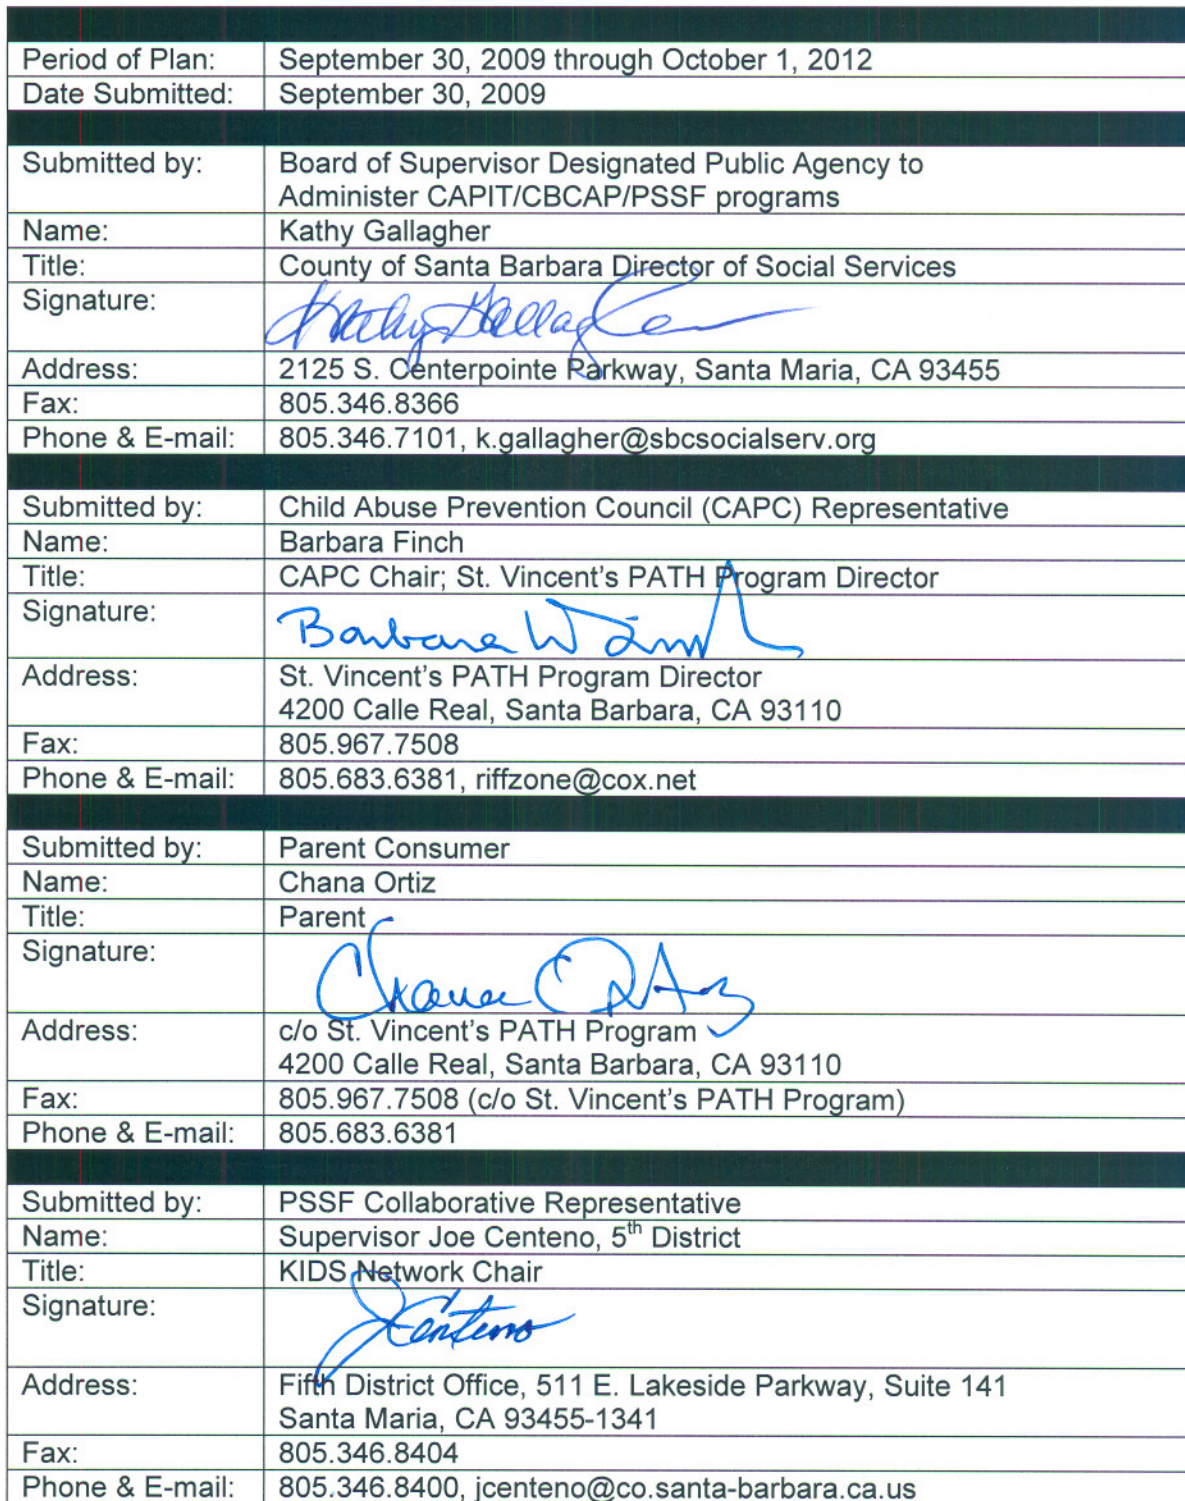 Period of Plan: September 30, 2009 through October 1, 2012
Date Submitted: September 30, 2009
Submitted by: Board of Supervisor Designated Public Agency to
Administer CAPIT/CBCAP/PSSF programs
Name: Kathy Gallagher
Title: County of Santa Barbara Director of Social Services
Signature: Kathy Gallagher
Address: 2125 S. Centerpointe Parkway, Santa Maria, CA 93455
Fax: 805.346.8366
Phone & E-mail: 805.346.7101, k.gallagher@sbcsocialserv.org
Submitted by: Child Abuse Prevention Council (CAPC) Representative
Name: Barbara Finch
Title: CAPC Chair; St. Vincent's PATH Program Director
Signature: Barbara
Address: St. Vincent's PATH Program Director
4200 Calle Real, Santa Barbara, CA 93110
Fax: 805.967.7508
Phone & E-mail: 805.683.6381, riffzone@cox.net
Submitted by: Parent Consumer
Name: Chana Ortiz
Title: Parent
Signature: Chana Ortiz
Address: c/o St. Vincent's PATH Program
4200 Calle Real, Santa Barbara, CA 93110
Fax: 805.967.7508 (c/o St. Vincent's PATH Program)
Phone & E-mail: 805.683.6381
Submitted by: PSSF Collaborative Representative
Name: Supervisor Joe Centeno, 5th District
Title: KIDS Network Chair
Signature: J Centeno
Address: Fifth District Office, 511 E. Lakeside Parkway, Suite 141
Santa Maria, CA 93455-1341
Fax: 805.346.8404
Phone & E-mail: 805.346.8400, jcenteno@co.santa-barbara.ca.us